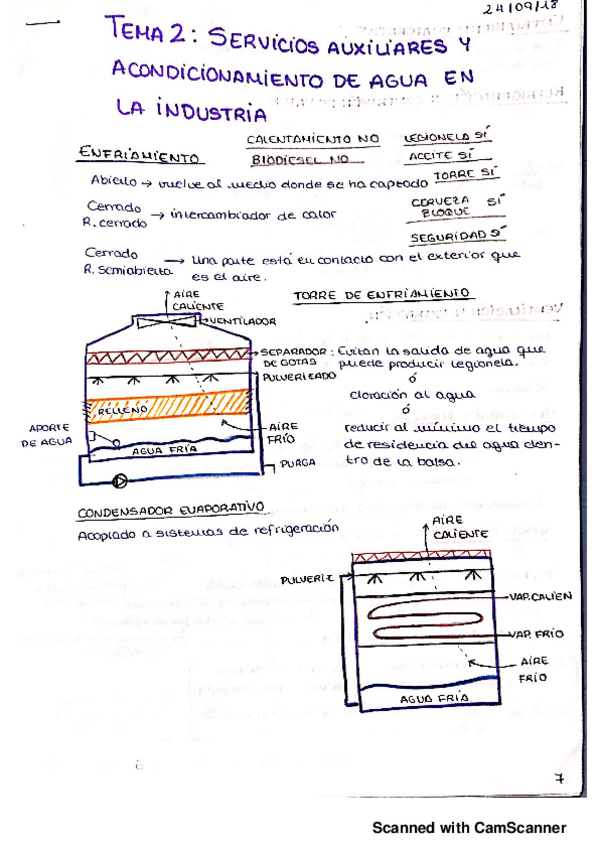 24/09/18
TEMA 2: SERVICIOS AUXILIARES Y
ACONDICIONAMIENTO DE AGUA EN
LA INDUSTRIA
ENFRIAMIENTO
CALENTAMIENTO NO
LEGIONELA SÍ
BIODIESEL NO
ACEITE SÍ
TORRE SÍ
CERVEZA SÍ
BLOQUE
SEGURIDAD SÍ
Abierto → vuelve al medio donde se ha captado
Cerrado
R. cerrado → intercambiador de calor
Cerrado
R. semiabierta → Una parte está en contacto con el exterior que
es el aire.
TORRE DE ENFRIAMIENTO
AIRE
CALIENTE
VENTILADOR
SEPARADOR
DE GOTAS
: Evitan la salida de agua que
puede producir legionela.
ó
cloración al agua
ó
reducir al mínimo el tiempo
de residencia del agua den-
tro de la balsa.
PULVERIZADO
RELLENO
APORTE
DE AGUA
AIRE
FRÍO
AGUA FRÍA
PURGA
CONDENSADOR EVAPORATIVO
Acoplado a sistemas de refrigeración
AIRE
CALIENTE
PULVERIZ
VAP. CALIEN
VAP. FRÍO
AIRE
FRÍO
AGUA FRÍA
7
Scanned with CamScanner